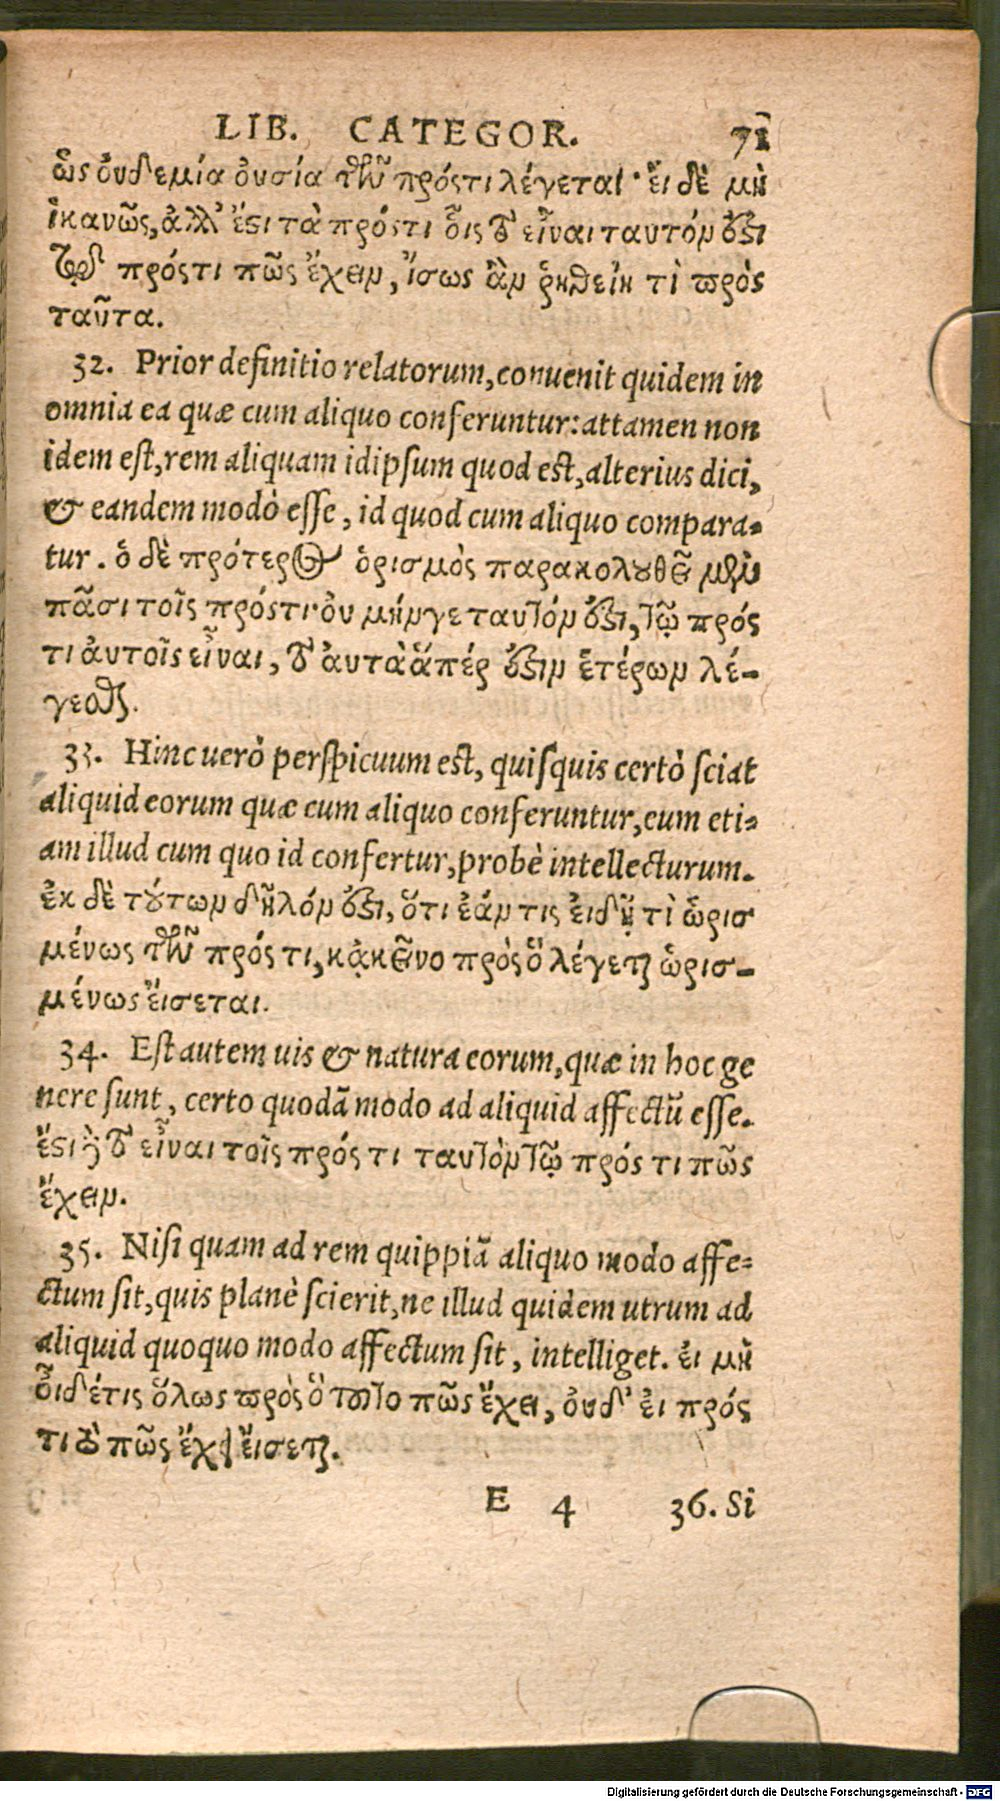 LIB. CATEGOR. 71
ὡς οὐδεμία οὐσία τῶν πρός τι λέγεται· εἰ δὲ μὴ
ἱκανῶς, ἀλλ' ἔστι τὰ πρός τι οἷς τὸ εἶναι ταυτόν ἐστι
τῷ πρός τι πῶς ἔχειν, ἴσως ἂν ῥηθείη τὶ πρὸς
ταῦτα.
32. Prior definitio relatorum, conuenit quidem in
omnia ea quæ cum aliquo conferuntur: attamen non
idem est, rem aliquam id ipsum quod est, alterius dici,
& eandem modò esse, id quod cum aliquo compara-
tur. ὁ δὲ πρότερος ὁρισμὸς παρακολουθεῖ μὲν
πᾶσι τοῖς πρός τι· οὐ μήν γε ταυτόν ἐστι, τῷ πρός
τι αὐτοῖς εἶναι, τὸ αὐτὰ ἅπέρ ἐστιν ἑτέρων λέ-
γεσθαι.
33. Hinc uerò perspicuum est, quisquis certò sciat
aliquid eorum quæ cum aliquo conferuntur, eum eti-
am illud cum quo id confertur, probè intellecturum.
ἐκ δὲ τούτων δῆλόν ἐστι, ὅτι ἐάν τις εἰδῇ τὶ ὡρισ
μένως τῶν πρός τι, κἀκεῖνο πρὸς ὃ λέγεται ὡρισ-
μένως εἴσεται.
34. Est autem uis & natura eorum, quæ in hoc ge
nere sunt, certo quodā modo ad aliquid affectū esse.
ἔστι γὰρ τὸ εἶναι τοῖς πρός τι ταυτὸν τῷ πρός τι πῶς
ἔχειν.
35. Nisi quam ad rem quippiā aliquo modo affe-
ctum sit, quis planè scierit, ne illud quidem utrum ad
aliquid quoquo modo affectum sit, intelliget. εἰ μὴ
οἶδέ τις ὅλως πρὸς ὃ τοῦτο πῶς ἔχει, οὐδ' εἰ πρός
τι πῶς ἔχει εἴσεται.
E 4 36. Si
Digitalisierung gefördert durch die Deutsche Forschungsgemeinschaft - DFG